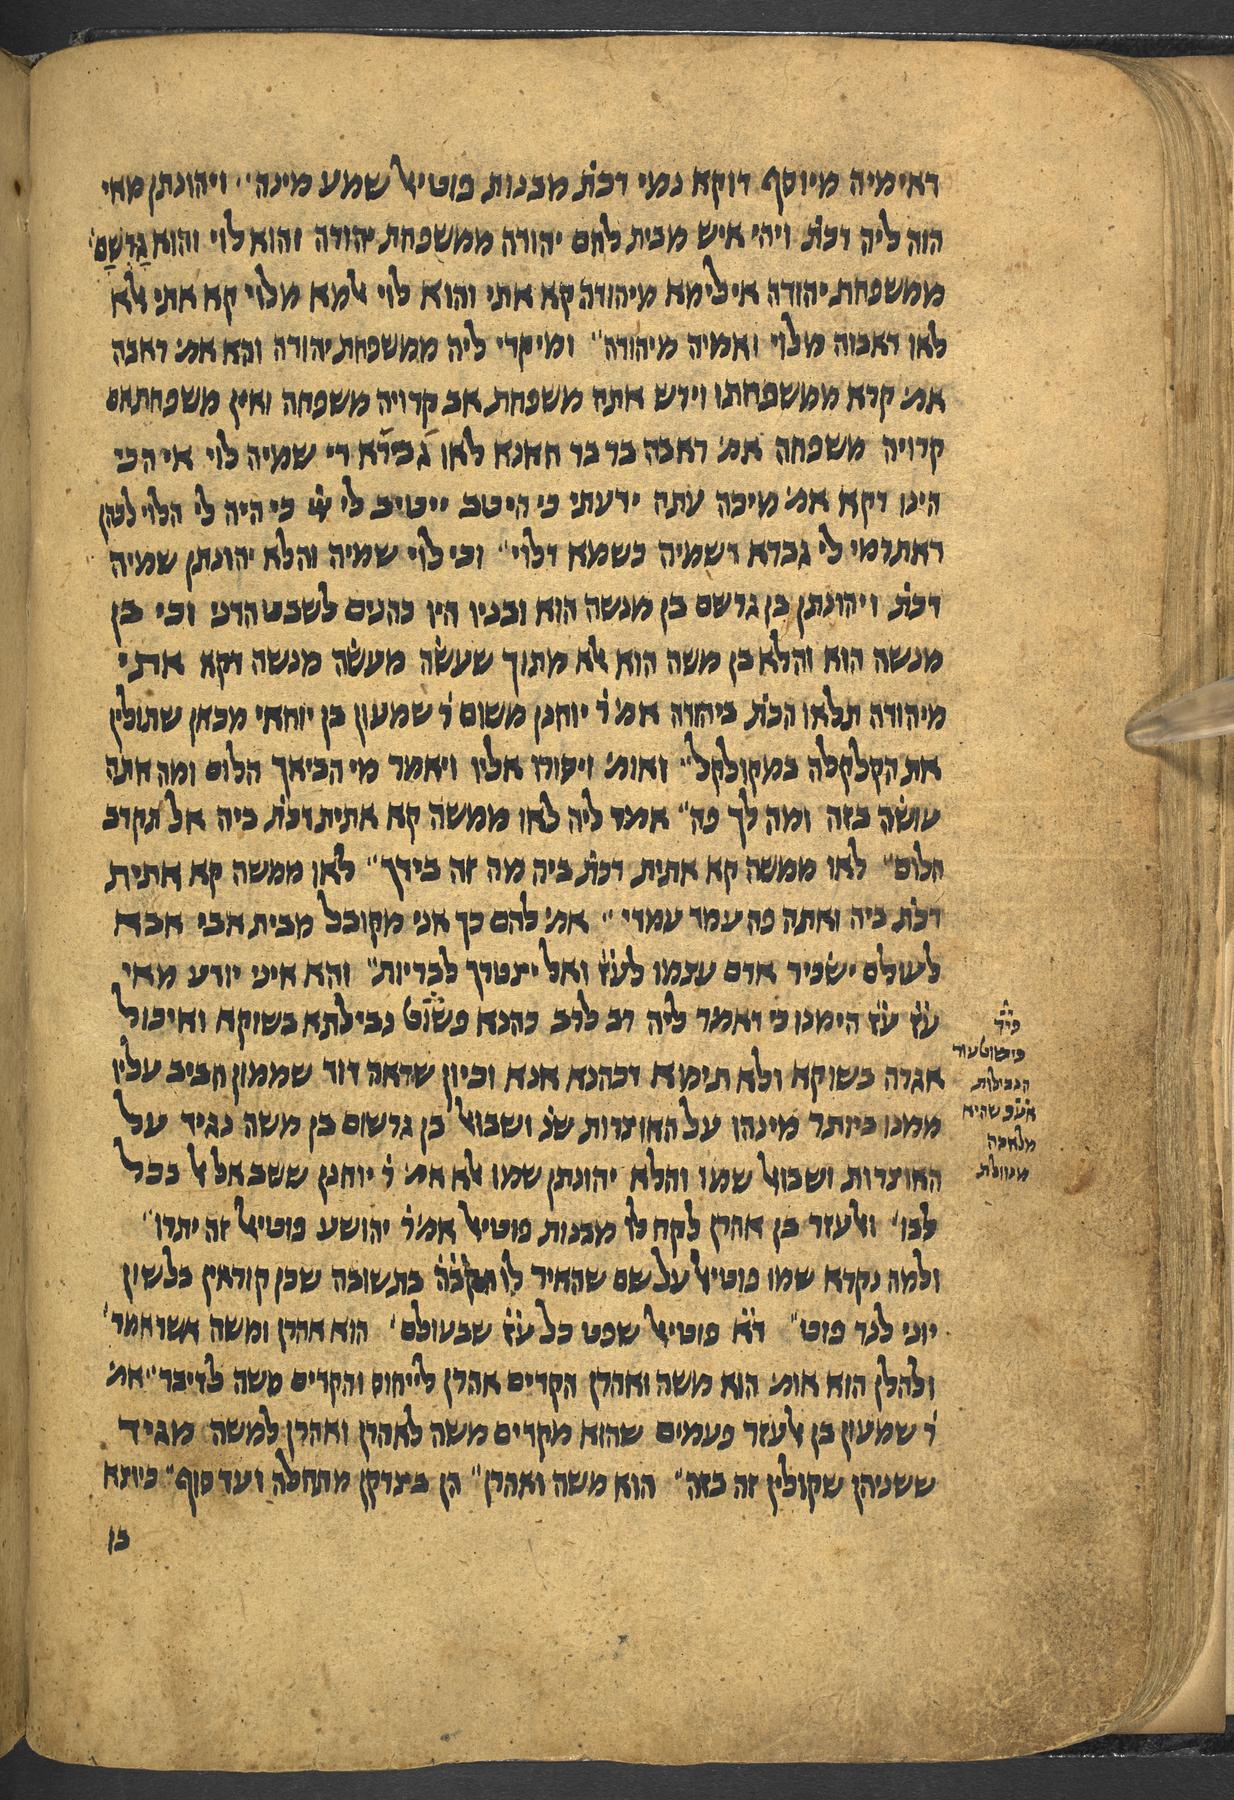 דאימיה מיוסף דוקא נמי דכת׳ מבנות פוטיאל שמע מינה״ ויהונתן מאי
הוה ליה דכת׳ ויהי איש מבית לחם יהודה ממשפחת יהודה והוא לוי והוא גר שם׳
ממשפחת יהודה אילימא מיהודה קא אתי והוא לוי אלמא מלוי קא אתי אלא
לאו דאבוה מלוי ואמיה מיהודה״ ומיקרי ליה ממשפחת יהודה והא אמ׳ ראבה
אמ׳ קרא ממשפחתו וירש אתה משפחת אב קרויה משפחה ואין משפחת אם
קרויה משפחה אמ׳ ראבה בר בר חאנא לאו גברא די שמיה לוי אי הכי
הינו דקא אמ׳ מיכה עתה ידעתי כי היטב ייטיב לי ש׳ כי היה לי הלוי לכהן
דאתרמי לי גברא דשמיה כשמא דלוי״ וכי לוי שמיה והלא יהונתן שמיה
דכת׳ ויהונתן בן גרשם בן מנשה הוא ובניו היו כהנים לשבט הדני וכי בן
מנשה הוא והלא בן משה הוא אלא מתוך שעשה מעשה מנשה דקא אתי
מיהודה תלאו הכת׳ ביהודה אמ׳ ר׳ יוחנן משום ר׳ שמעון בן יוחאי מכאן שתולין
את הקלקלה במקולקל״ ואומ׳ ויסורו אליו ויאמר מי הביאך הלום ומה אתה
עושה בזה ומה לך פה״ אמר ליה לאו ממשה קא אתית דכת׳ ביה אל תקרב
הלום״ לאו ממשה קא אתית דכת׳ ביה מה זה בידך״ לאו ממשה קא אתית
דכת׳ ביה ואתה פה עמד עמדי״ אמ׳ להם כך אני מקובל מבית אבי אבא
לעולם ישכיר אדם עצמו לע״ז ואל יצטרך לבריות״ והא אינו יודע מאי
ע״ז ע״ז הימנו כי דאמר ליה רב לרב כהנא פשוט נבילתא בשוקא ואיכול
אגרה בשוקא ולא תימא דכהנא אנא וכיון שראה דוד שממון חביב עליו
ממנו ביותר מינהו על האוצרות שנ׳ ושבואל בן גרשום בן משה נגיד על
האוצרות ושבואל שמו והלא יהונתן שמו אלא אמ׳ ר׳ יוחנן ששב אל אל בכל
לבו״ ואלעזר בן אהרן לקח לו מבנות פוטיאל אמ׳ ר׳ יהושע פוטיאל זה יתרו״
ולמה נקרא שמו פוטיאל על שם שהאיר לו הקב״ה בתשובה שכן קוראין בלשון
יוני לנר פוט״ ד״א פוטיאל שפט כל ע״ז שבעולם׳ הוא אהרן ומשה אשר אמר׳
ולהלן הוא אומ׳ הוא משה ואהרן הקדים אהרן לייחוס והקדים משה לדיבר״ אמ׳
ר׳ שמעון בן אלעזר פעמים שהוא מקדים משה לאהרן ואהרן למשה מגיד
ששניהן שקולין זה כזה״ הוא משה ואהרן״ הן בצדקן מתחלה ועד סוף״ כיוצא
בו
פי׳
פישוט עור
הנבילות
אע״פ שהיא
מלאכה
מנוולת